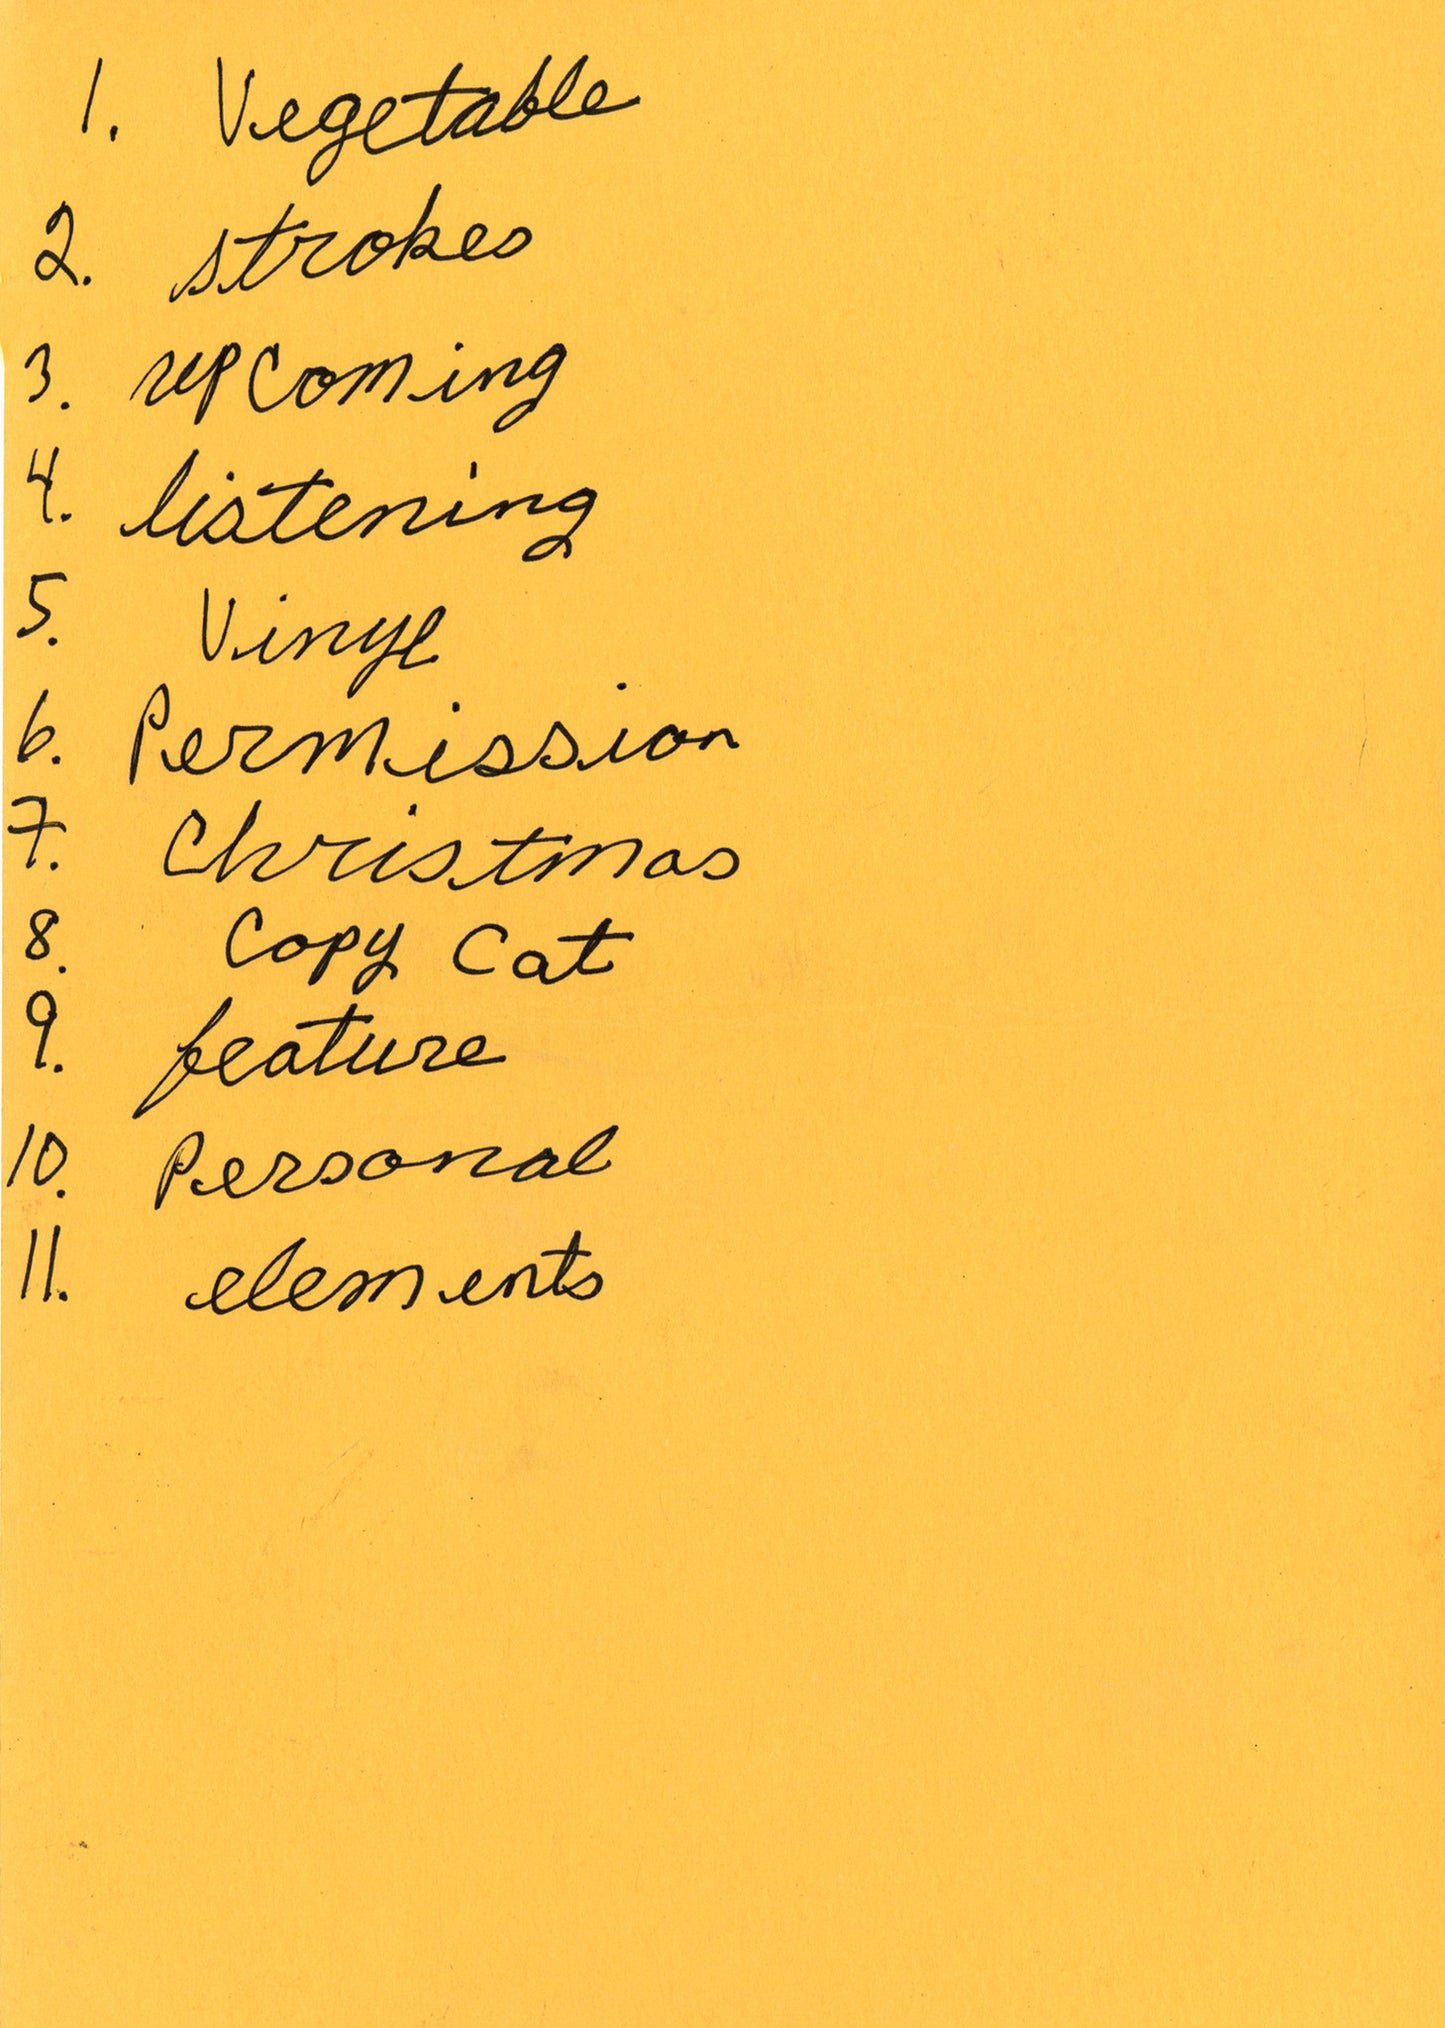 1. Vegetable
2. strokes
3. upcoming
4. listening
5. Vinyl
6. Permission
7. Christmas
8. Copy Cat
9. feature
10. Personal
11. elements